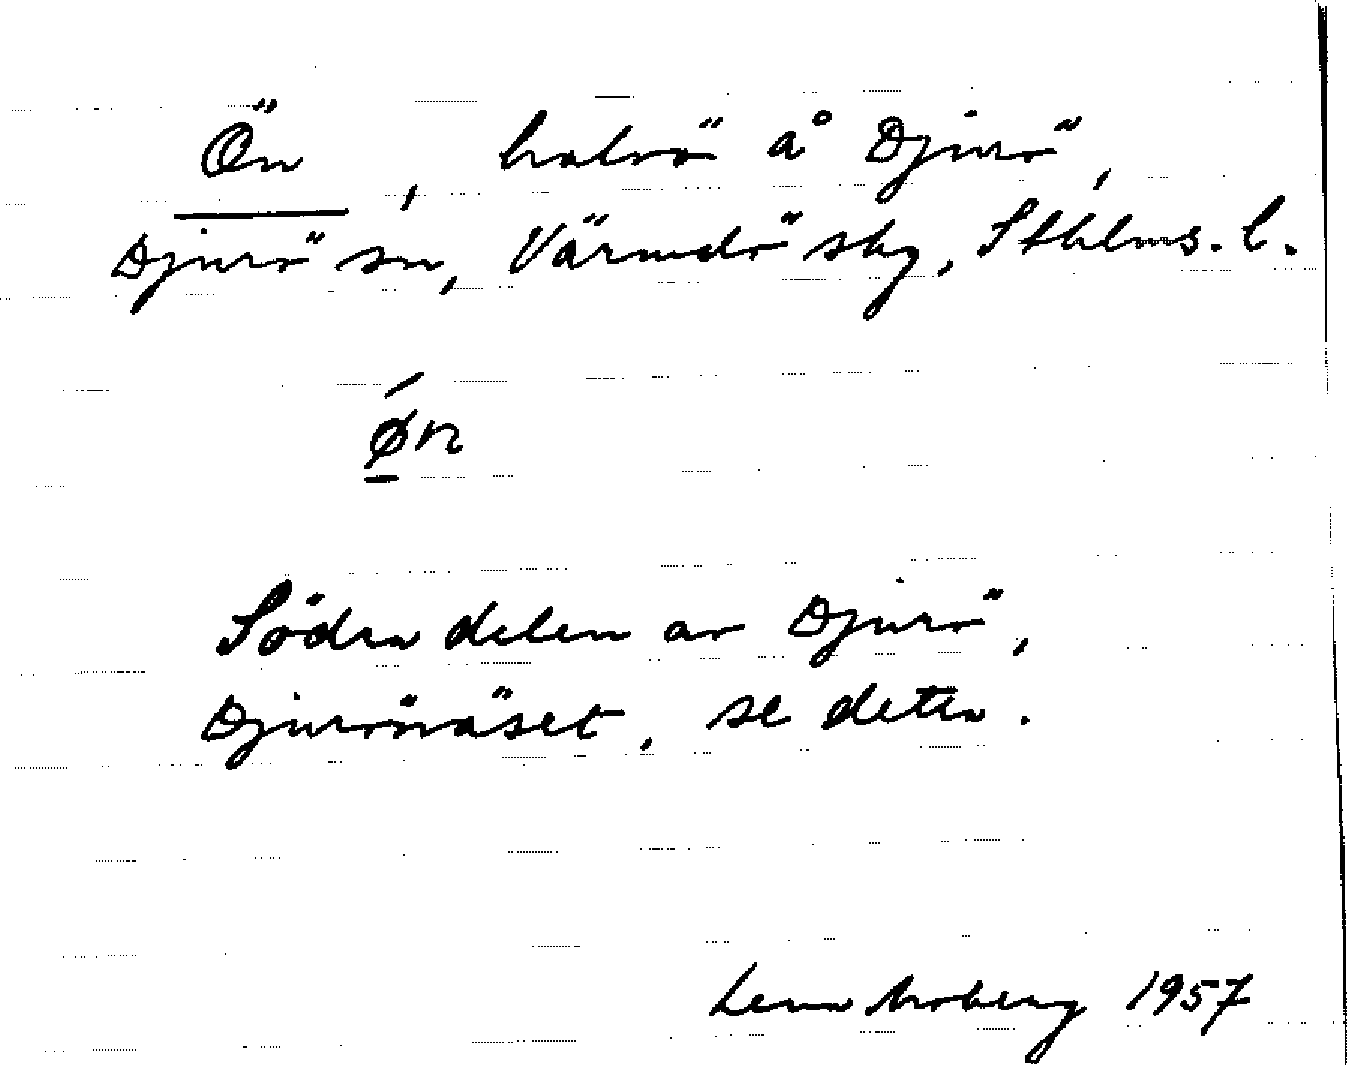 Ön, halvö å Djurö,
Djurö sn, Värmdö skg, Sthlms. l.
ǿn
Södra delen av Djurö,
Djurönäset, se detta.
Lena Moberg 1957